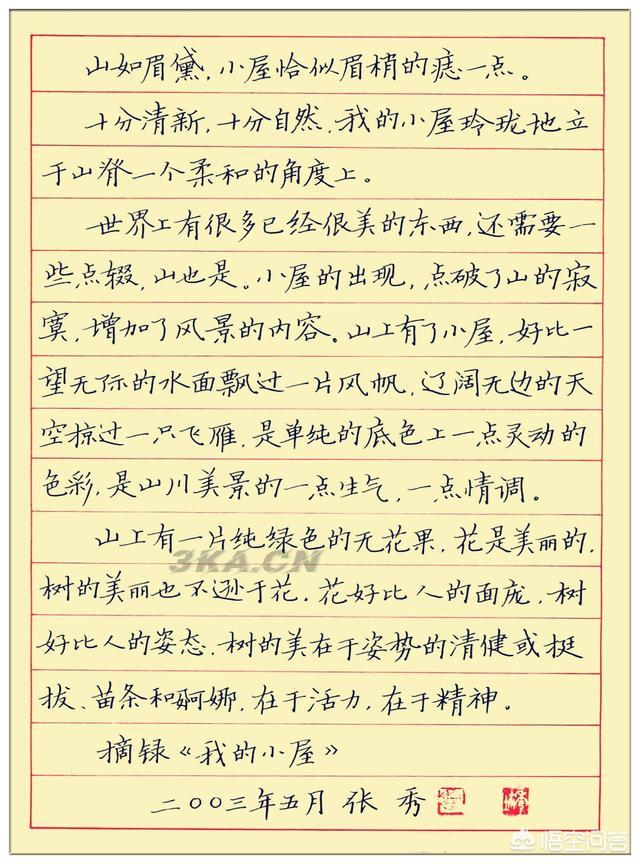 山如眉黛,小屋恰似眉梢的痣一点。
十分清新,十分自然,我的小屋玲珑地立
于山脊一个柔和的角度上。
世界上有很多已经很美的东西,还需要一
些点缀,山也是。小屋的出现,点破了山的寂
寞,增加了风景的内容。山上有了小屋,好比一
望无际的水面飘过一片风帆,辽阔无边的天
空掠过一只飞雁,是单纯的底色上一点灵动的
色彩,是山川美景的一点生气,一点情调。
山上有一片纯绿色的无花果,花是美丽的,
3KA.CN
树的美丽也不逊于花。花好比人的面庞,树
好比人的姿态,树的美在于姿势的清健或挺
拔、苗条和婀娜,在于活力,在于精神。
摘录《我的小屋》
二〇〇三年五月 张秀
悟空问答